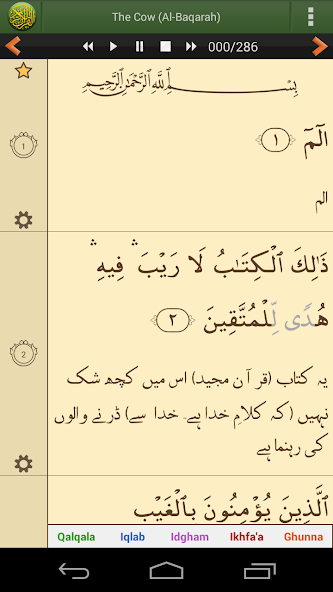 The Cow (Al-Baqarah)
000/286
بِسْمِ ٱللَّهِ ٱلرَّحْمَٰنِ ٱلرَّحِيمِ
1
الٓمٓ ١
الم
2
ذَٰلِكَ ٱلْكِتَٰبُ لَا رَيْبَ ۛ فِيهِ ۛ
هُدًى لِّلْمُتَّقِينَ ٢
یہ کتاب (قر آ ن مجید) اس میں کچھ شک
نہیں (کہ کلامِ خدا ہے۔ خدا سے) ڈرنے والوں
کی رہنما ہے
ٱلَّذِينَ يُؤْمِنُونَ بِٱلْغَيْبِ
Qalqala Iqlab Idgham Ikhfa'a Ghunna